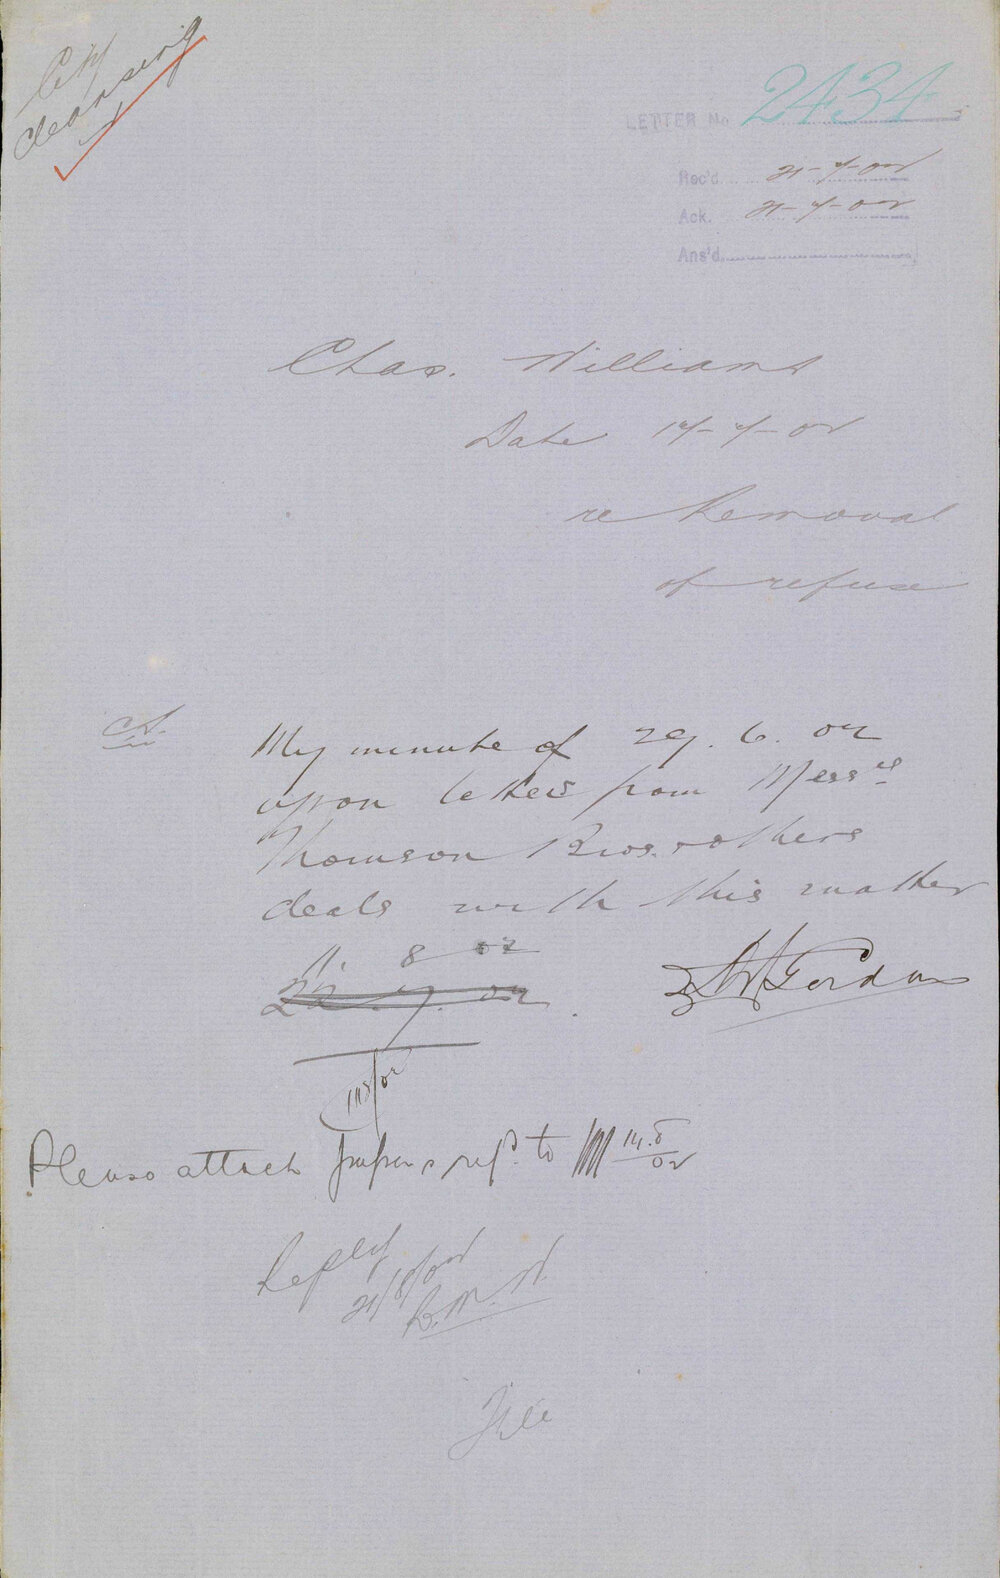 City
cleansing
LETTER No 2434
Rec'd 21-7-02
Ack. 21-7-02
Ans'd
Chas. Williams
Date 17-7-02
re Removal
of refuse
My minute of 29.6.02
upon letter from Messrs
Thomson Bros. & others
deals with this matter
11. 8 02
22. 7. 02
Gordon
11/8/02
Please attach papers refd. to 14.8/02
Reply
21/8/02
File